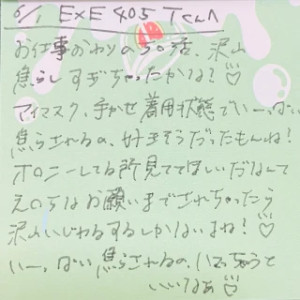 6/1 EXE 405 Tくん
お仕事おわりの 活、沢山
焦らしすぎちゃったかな?♡
アイマスク、手かせ着用状態でいーっぱい
焦らされるの、好きそうだったもんね!
オ ニーしてる所見ててほしいだなんて
え お願いまでされちゃったら
沢山いじわるするしかないよね!♡
いーっぱい焦らされるの、 ちゃうと
いいなあ♡